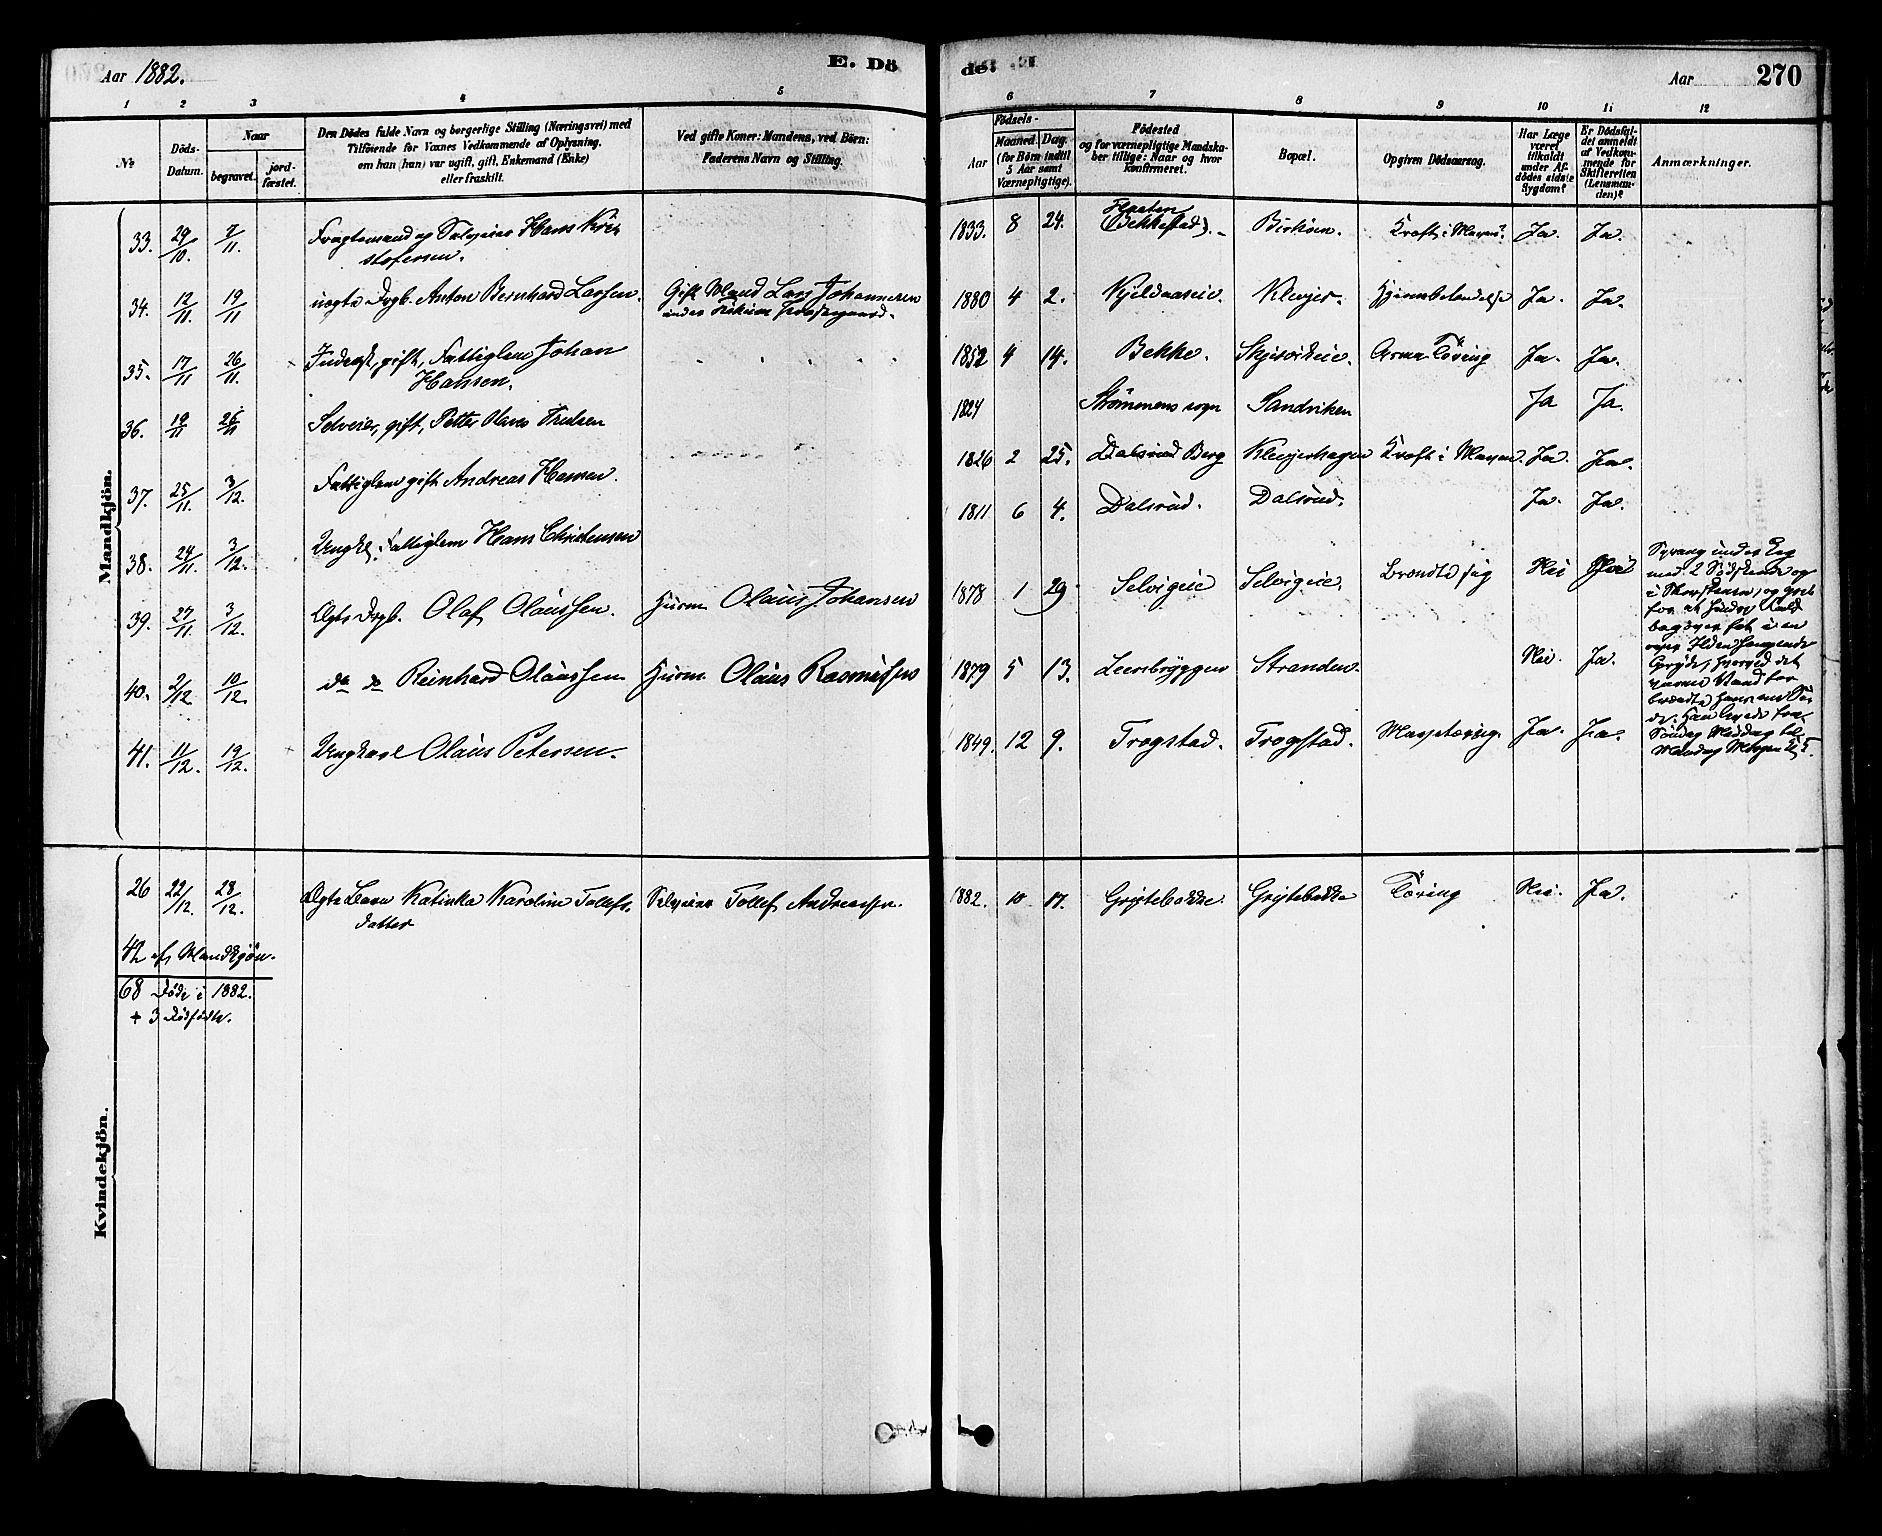 Aar 1882.
E. Dö
de.
Aar
270
1 2 3 4 5 6 7 8 9 10 11 12
No
Döds-
Datum.
Naar
begravet.
jord-
fæstet.
Den Dödes fulde Navn og borgerlige Stilling (Næringsvei) med
Tilföiende for Voxnes Vedkommende af Oplysning,
om han (hun) var ugift, gift, Enkemand (Enke)
eller fraskilt.
Ved gifte Koner: Mandens, ved Börn:
Faderens Navn og Stilling.
Födsels-
Aar
Maaned. Dag.
(for Börn indtil
5 Aar samt
Værnepligtige).
Födested
og for værnepligtige Mandska-
ber tillige: Naar og hvor
konfirmeret.
Bopæl.
Opgiven Dödsaarsag.
Har Læge
været
tilkaldt
under Af-
dödes sidste
Sygdom?
Er Dödsfal-
det anmeldt
af Vedkom-
mende for
Skifteretten
(Lensman-
den)?
Anmærkninger.
Mandkjön.
33. 29/10. 7/11. Fragtemand og Selveier Hans Kri-
stofersen. 1833. 8 24. (Bekkestad). Kræft i Maven. Ja. Ja.
34. 12/11. 19/11 Anton Bernhard Larsen. Gift Mand Lars Johannesen
1880 4 2. Kjeldaaseie. Klevjer. Hjernebetændelse Ja. Ja.
35. 17/11 26/11. Inderst, gift, Fattiglem Johan
Hansen. 1852 4 14. Bekke. Tæring Ja. Ja.
36. 19/11 26/11 Selveier, gift, Petter Trulsen 1824 Strømmens sogn Sandviken Ja Ja.
37. 25/11. 3/12. Fattiglem gift Andreas Hansen. 1826 2 25. Dalsrud Berg Klevjerhagen Kræft i Maven. Ja. Ja.
38. 24/11. 3/12. Ungk. Fattiglem Hans Christensen 1811 6 4. Dalsrud. Dalsrud. Ja. Ja.
39. 27/11. 3/12. Ægte Olaf Olaussen. Husm. Olaus Johansen 1878 1 29 Selvigeie Selvigeie. Brændte sig Nei
40. 2/12 10/12. do do Reinhard Olaussen Husm Olaus Rasmussen 1879 5 13. Leersbryggen Stranden. Nei. Ja.
41. 11/12. 19/12. Ungkarl Olaus Petersen. 1849. 12 9. Trogstad. Trogstad. Ja. Ja.
Sprang under Leg
med 2 Sødskende
i Skorstenen,
over Ilden hængende
Gryde, hvorved det
varme Vand for-
brændte
Han levede fra
Søndag Middag til
Mandag Morgen Kl 5.
Kvindekjön.
26 22/12. 28/12. Ægte Barn Katinka Karoline Tollefs-
datter Selveier Tollef Andreassen. 1882. 10 17. Grytebakke. Grytebakke Tæring Nei. Ja.
42 af Mandkjøn.
68 Døde i 1882.
+ 3 Dødfødte.